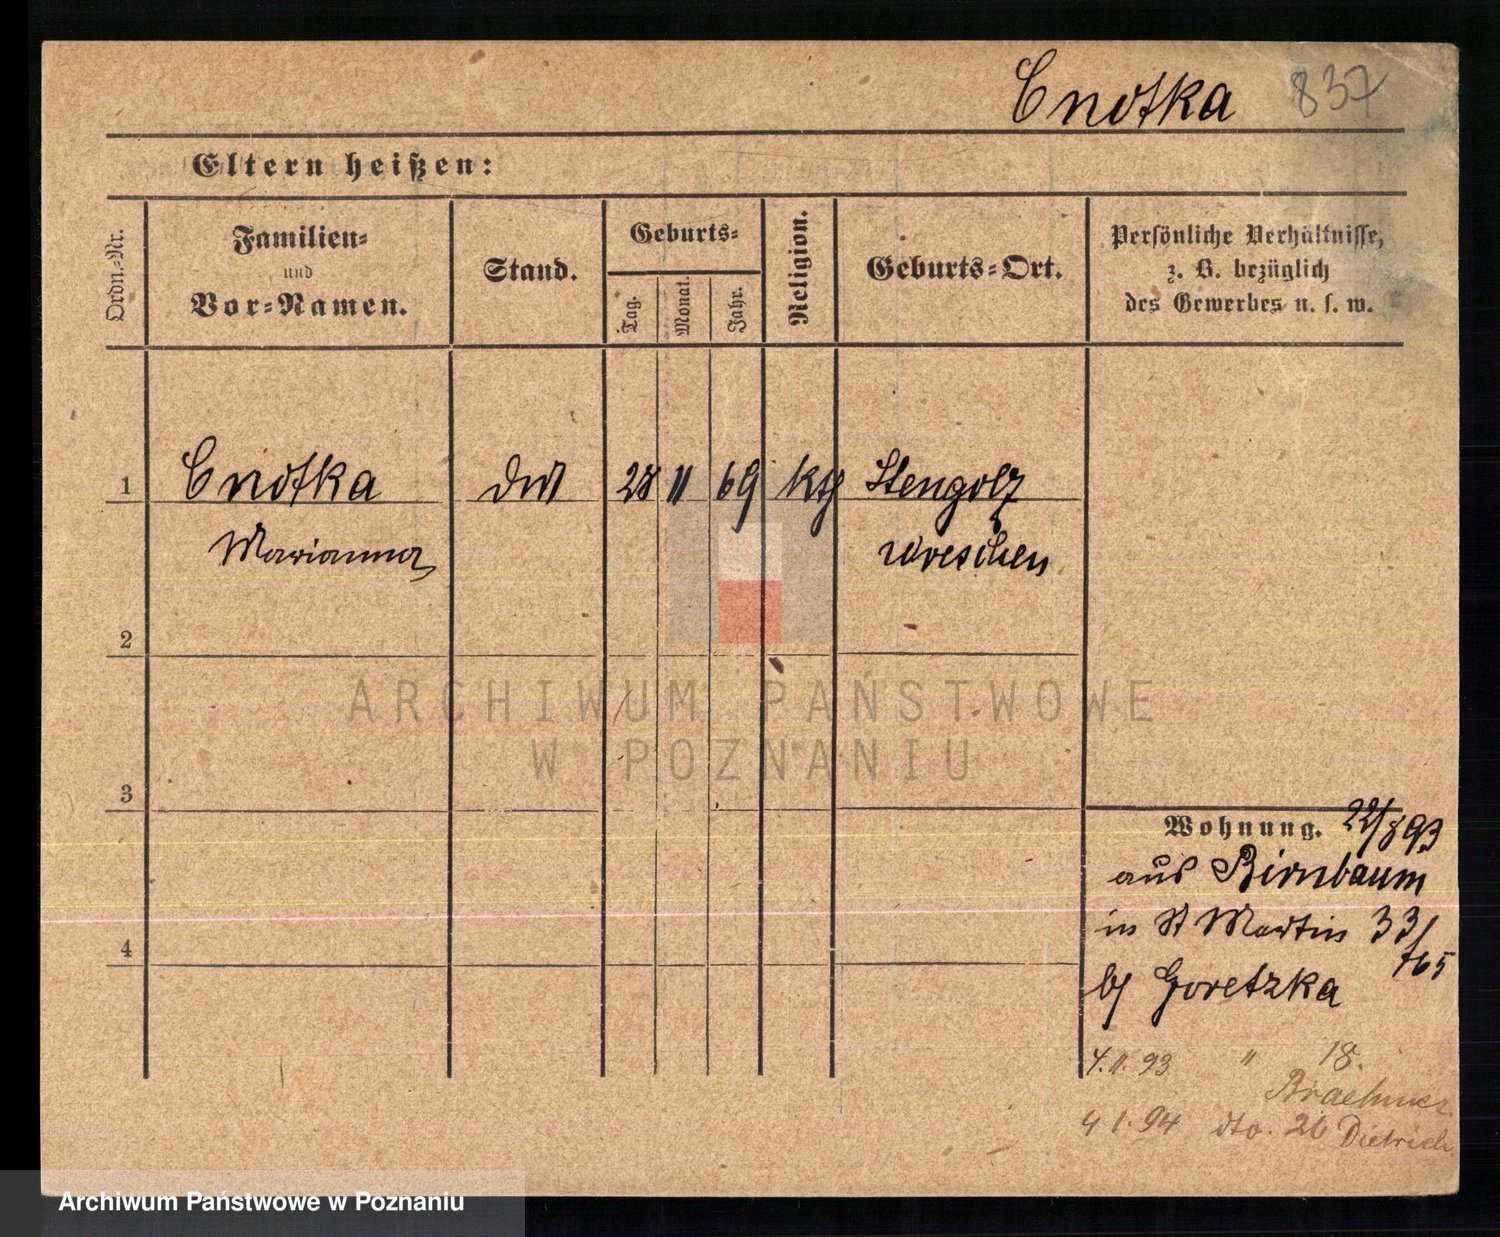 Cnotka 837
Eltern heißen:
Ordn.-Nr.
Familien-
und
Vor-Namen.
Stand.
Geburts-
Tag.
Monat.
Jahr.
Religion.
Geburts-Ort.
Persönliche Verhältnisse,
z. B. bezüglich
des Gewerbes u. s. w.
1 Cnotka 28 11 69 kth
Marianna Wreschen
2
ARCHIWUM PAŃSTWOWE
W POZNANIU
3
Wohnung. 22/8 93
aus Birnbaum
in St Martin 33/
bei Goretzka
4
4.11.93 " 18.
4 1. 94 dto. 26 Dietrich
Archiwum Państwowe w Poznaniu